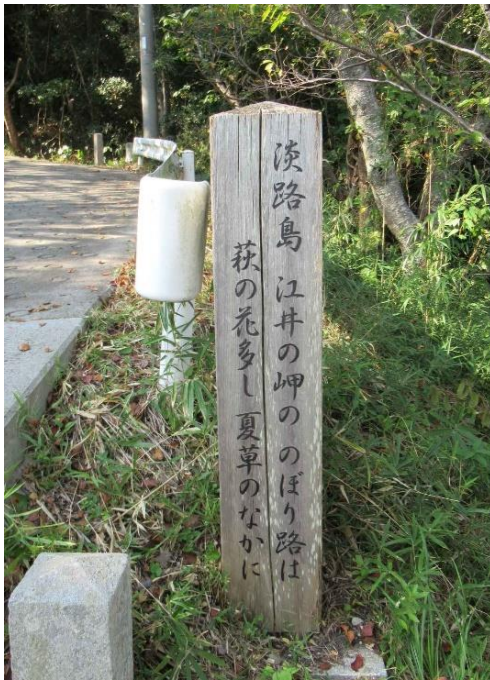 淡路島 江井の岬の のぼり路は
萩の花多し 夏草のなかに